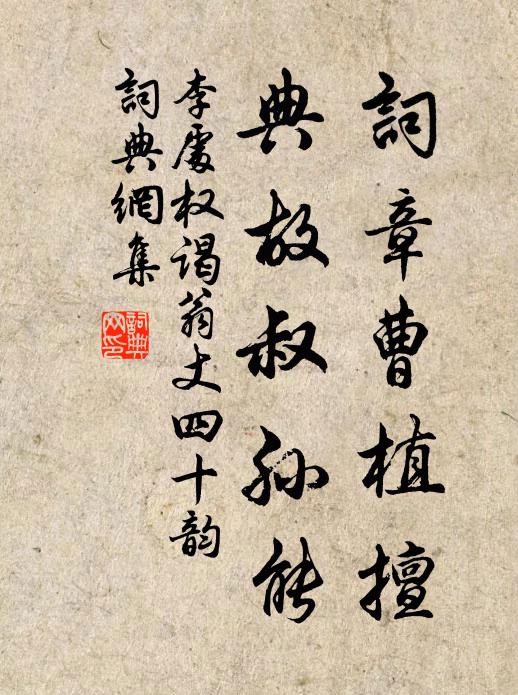 詞章曹植擅
典故叔孙能
李處权谒翁丈四十韵
詞典網集
詞典
网印